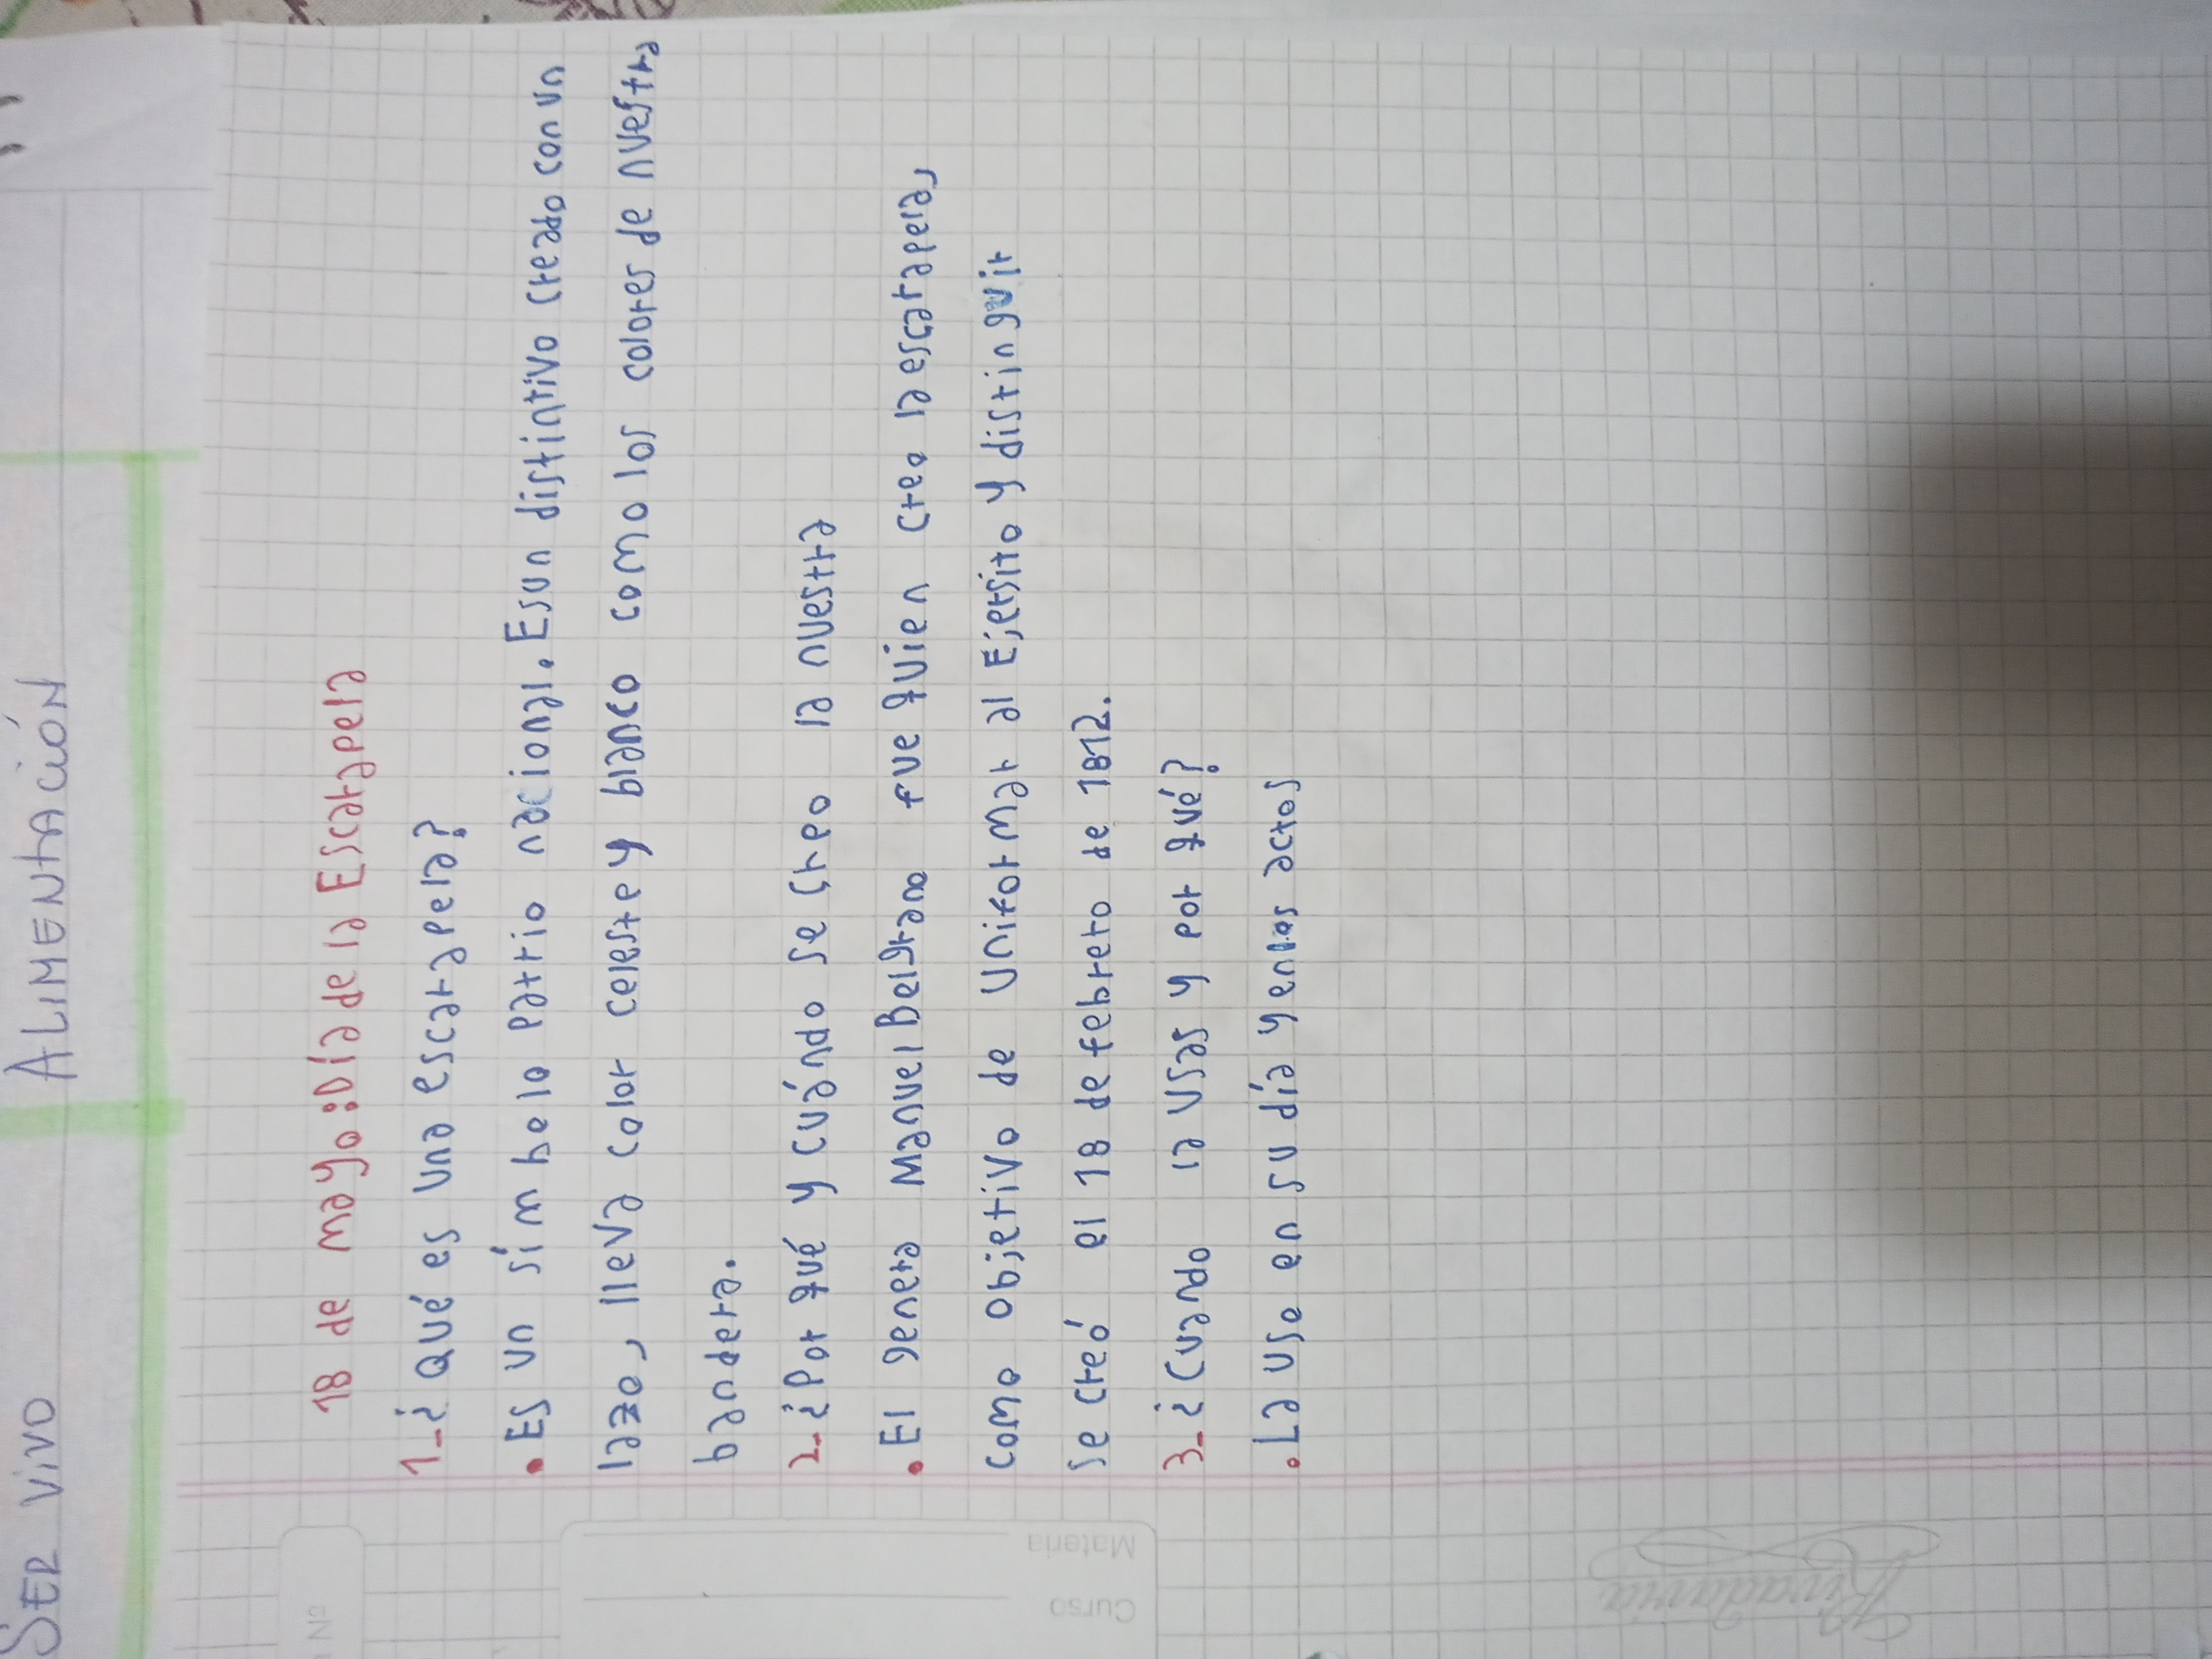 SER VIVO ALIMENtACIÓN
18 de mayo: Día de la Escarapela
1-¿Qué es una escarapela?
• Es un símbolo patrio nacional. Es un distintivo creado con un
lazo, lleva color celeste y blanco como los colores de nuestra
bandera.
2-¿Por qué y cuándo se creo la nuestra
• El general Manuel Belgrano fue quien creo la escarapela,
como objetivo de Uniformar al Ejersito y distinguir
se creó el 18 de febrero de 1812.
3-¿Cuando la usas y por qué?
• La uso en su día y en los actos
Nº
Materia
Curso
Rivadavia